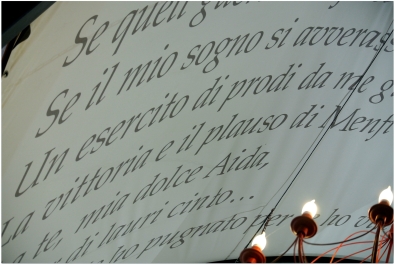 Se quell
Se il mio sogno si avveras
Un esercito di prodi da me g
La vittoria e il plauso di Menfi
a te, mia dolce Aida,
di lauri cinto...
ho pugnato per ho v